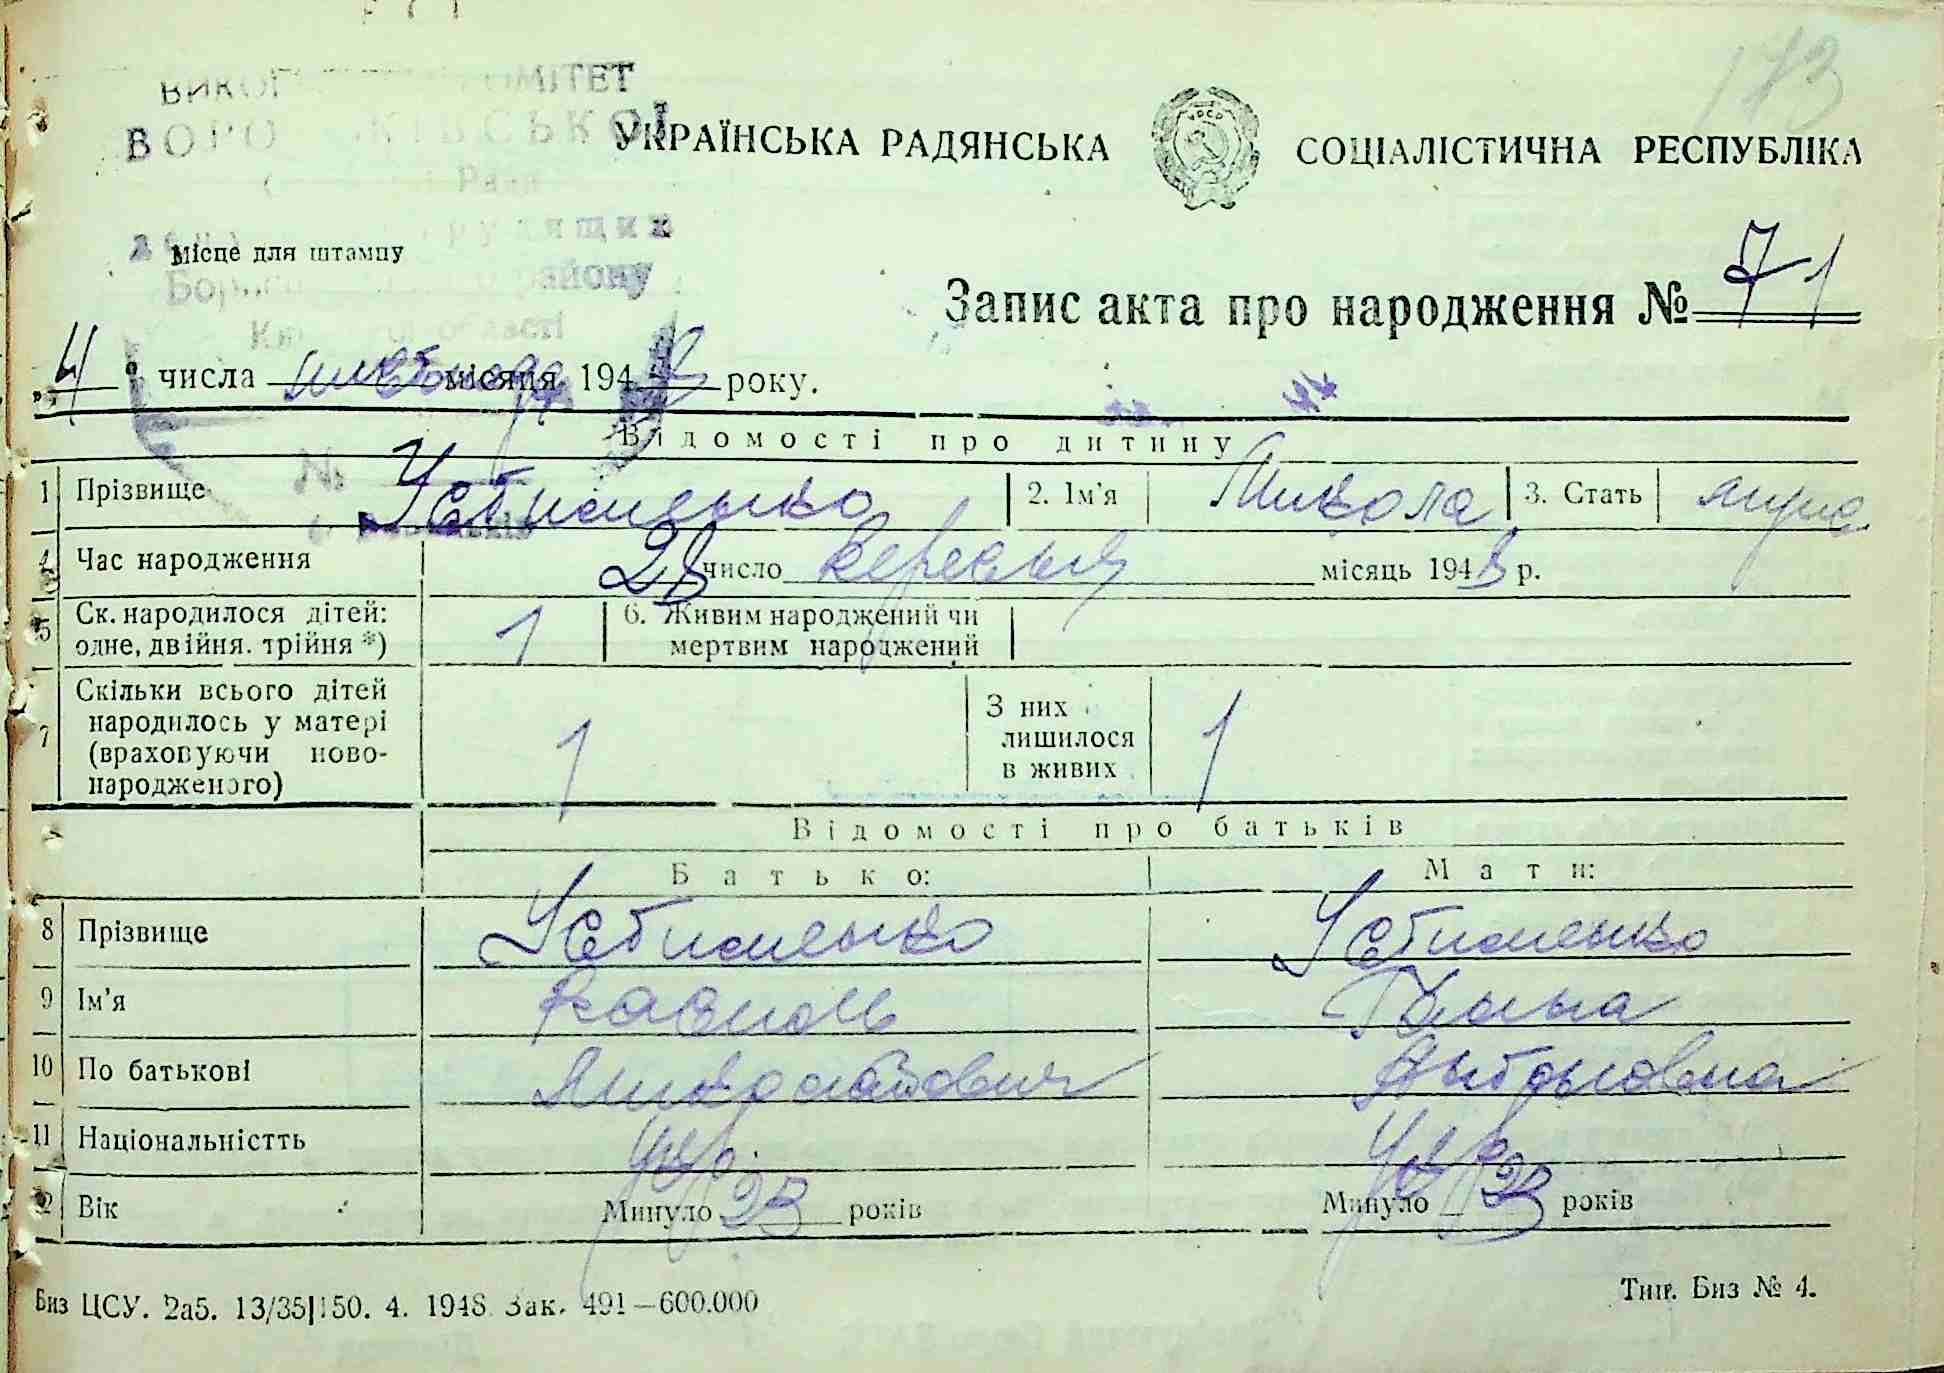 173
ВИКО ОМІТЕТ
ВОРО КІВСЬКОЇ
Рада
трудящих
Бори району
області
УКРАЇНСЬКА РАДЯНСЬКА СОЦІАЛІСТИЧНА РЕСПУБЛІКА
Місце для штампу
Запис акта про народження № 71
„4" числа листопада місяця 1948 року.
Відомості про дитину
1 Прізвище Устименко 2. Ім'я Микола 3. Стать муж.
4 Час народження 28 число вересня місяць 1948 р.
5 Ск. народилося дітей: одне, двійня. трійня *) 1 6. Живим народжений чи мертвим народжений
7 Скільки всього дітей народилось у матері (враховуючи ново-народженого) 1 З них лишилося в живих 1
Відомості про батьків
Батько: Мати:
8 Прізвище Устименко Устименко
9 Ім'я Василь Ганна
10 По батькові Миколайович Антоновна
11 Національністть укр. укр
12 Вік Минуло 23 років Минуло 23 років
Биз ЦСУ. 2а5. 13/35|150. 4. 1948 Зак. 491—600.000 Тип. Биз № 4.